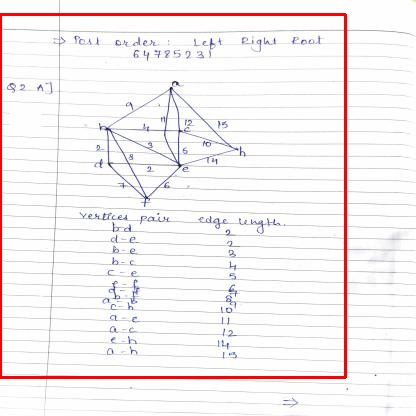 ⇒ Post order: Left Right Root
64785231
Q2 A]
a
9
11
12
15
b
4
c
10
h
3
5
14
2
8
d
2
e
7
6
f
vertices pair edge length.
b-d 2
d-e 2
b-e 3
b-c 4
c-e 5
e-f 6
d-f 7
b-f 8
a-b 9
c-h 10
a-e 11
a-c 12
e-h 14
a-h 15
⇒